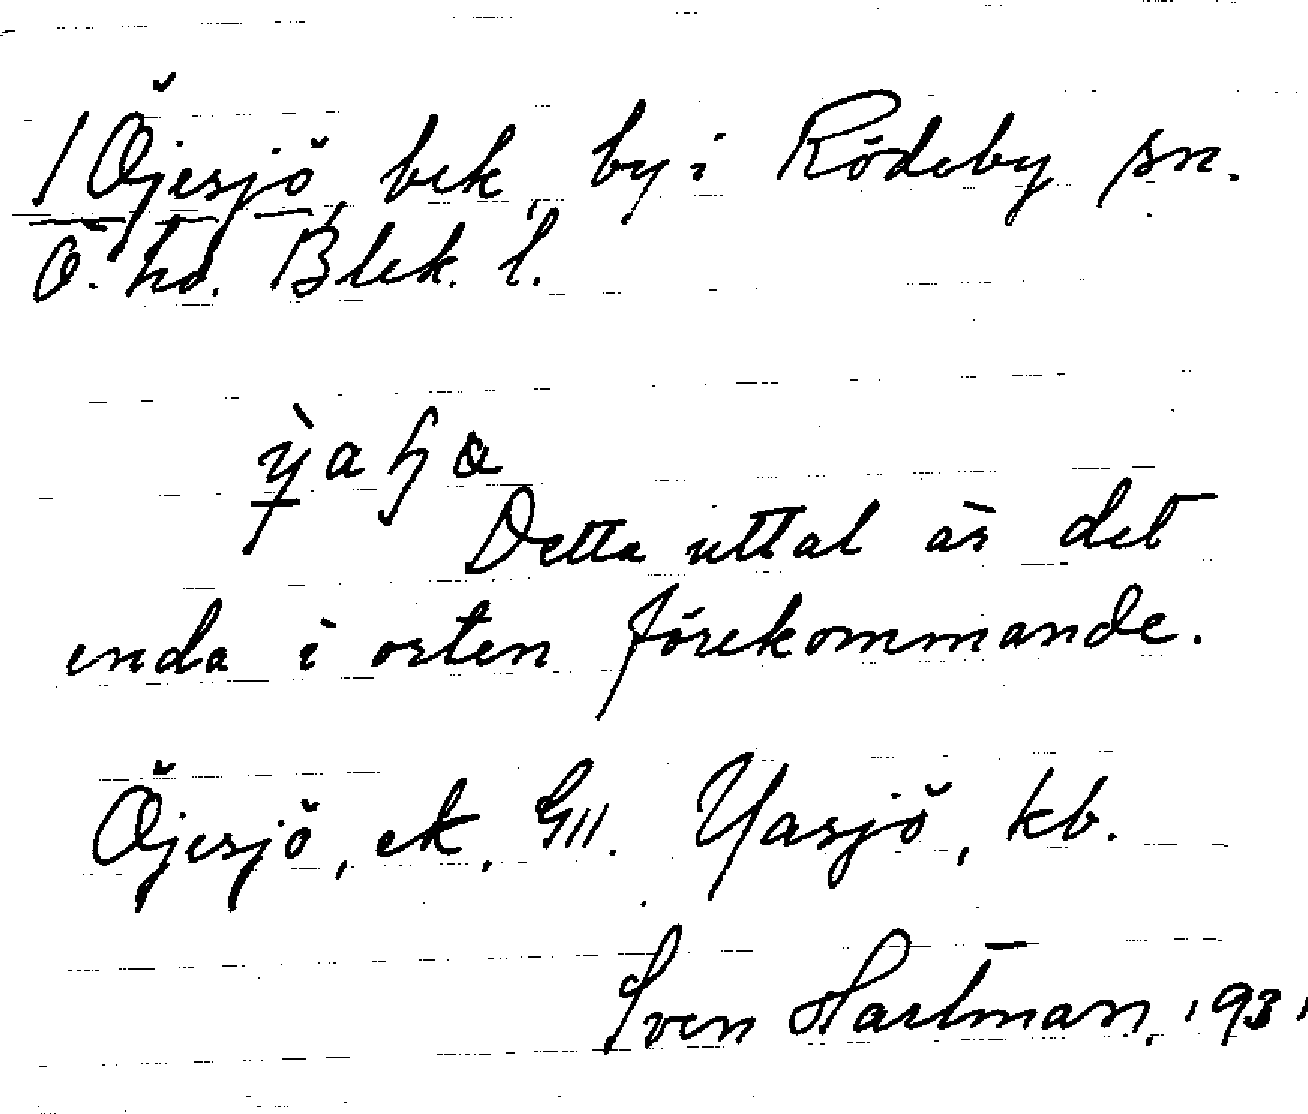 Öjesjö, bek, by i Rödeby sn.
Ö. hd. Blek. l.
Detta uttal är det
enda i orten förekommande.
Öjesjö, ek, GII. Yasjö, kb.
Sven Hartman, 1931